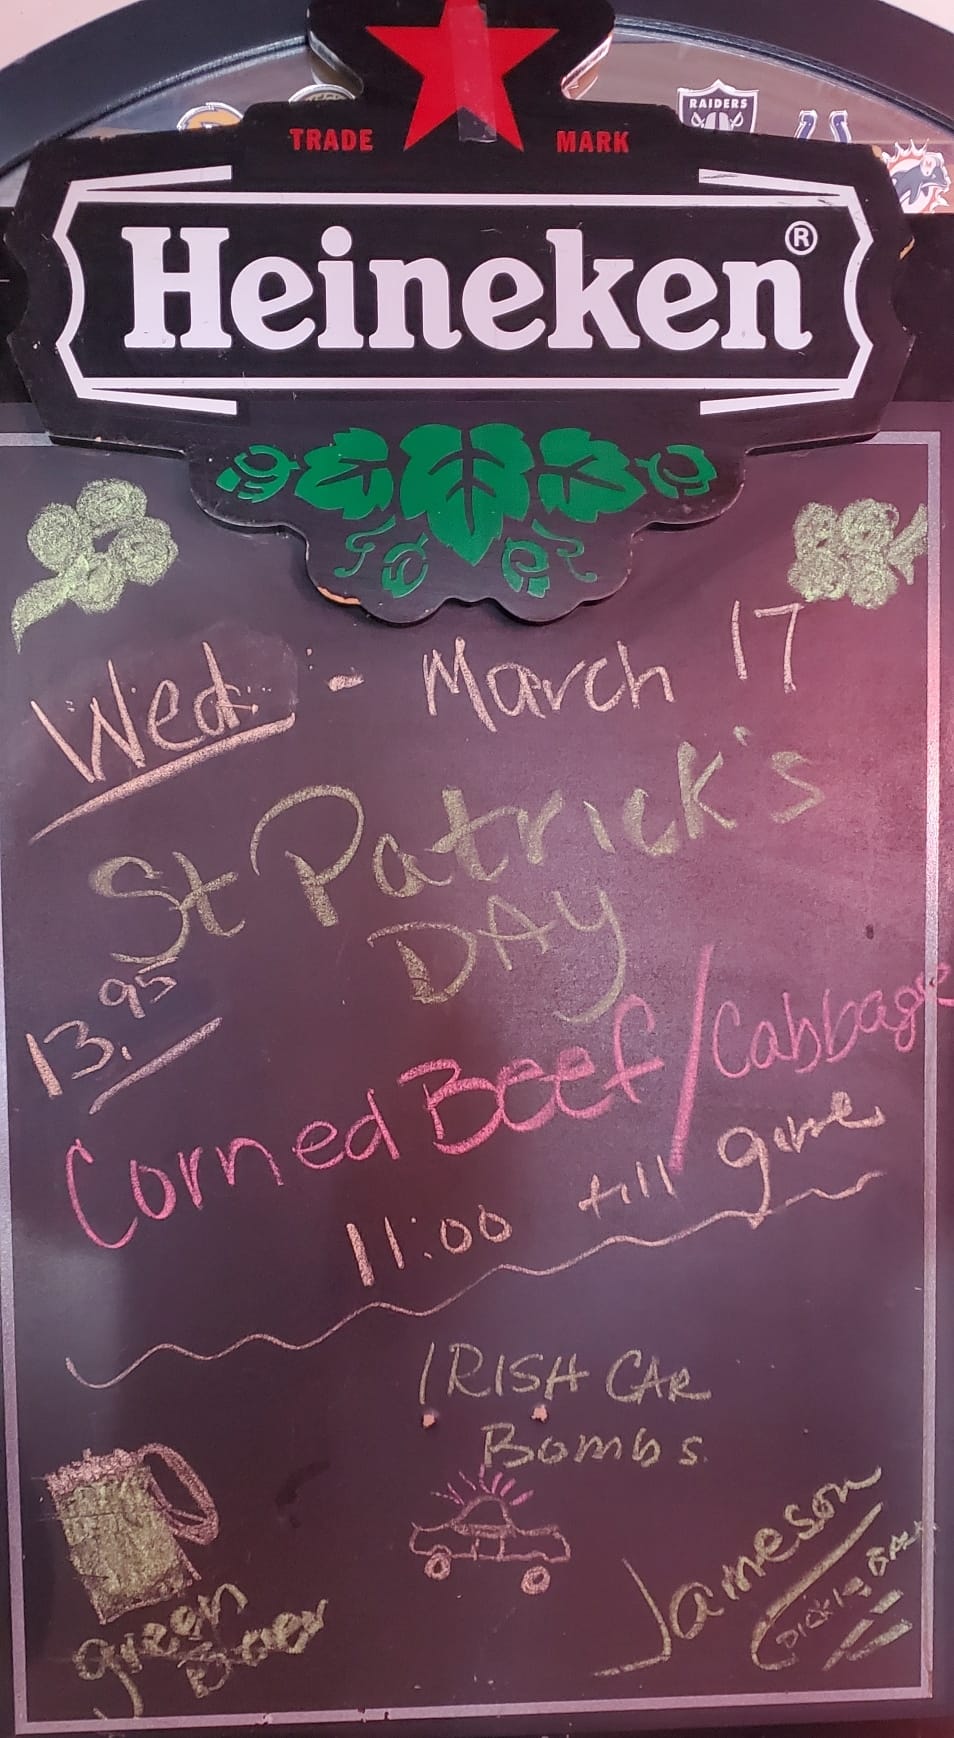 TRADE MARK
RAIDERS
Heineken®
Wed. - March 17
St Patrick's
DAY
13.95
Corned Beef/Cabbage
11:00 till gone
IRISH CAR
Bombs
Jameson
Pickle Back
green
Beer